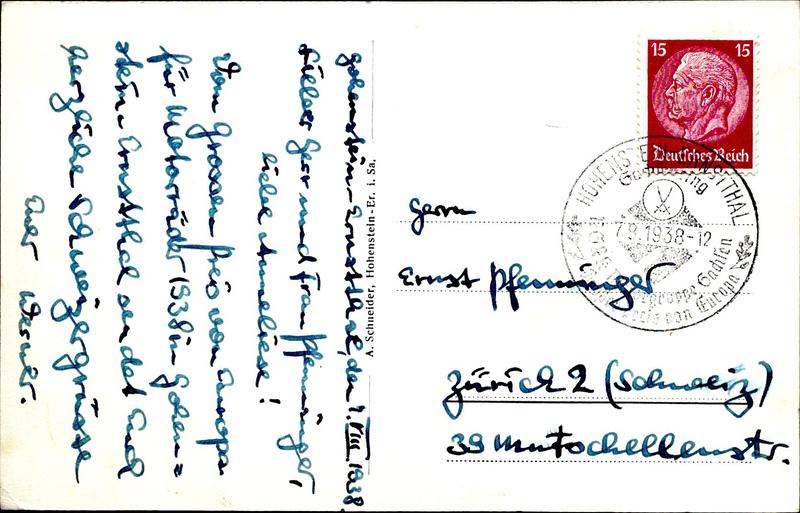 Hohenstein-Ernstthal, den 7. VIII. 1938.
Lieber Herr und Frau Pfenninger,
liebe Anneliese!
Vom Grossen Preis von Europa
für Motorräder 1938 in Hohen=
stein-Ernstthal sendet Euch
herzliche Schweizergrüsse
Euer Werner.
A. Schneider, Hohenstein-Er. i. Sa.
15 15
Deutsches Reich
HOHENSTEIN-ERNSTTHAL
Sachsenring
7.8.1938-12
1938
gruppe Sachsen
Preis von Europa
Herrn
Ernst Pfenninger
Zürich 2 (Schweiz)
39 Mutschellenstr.